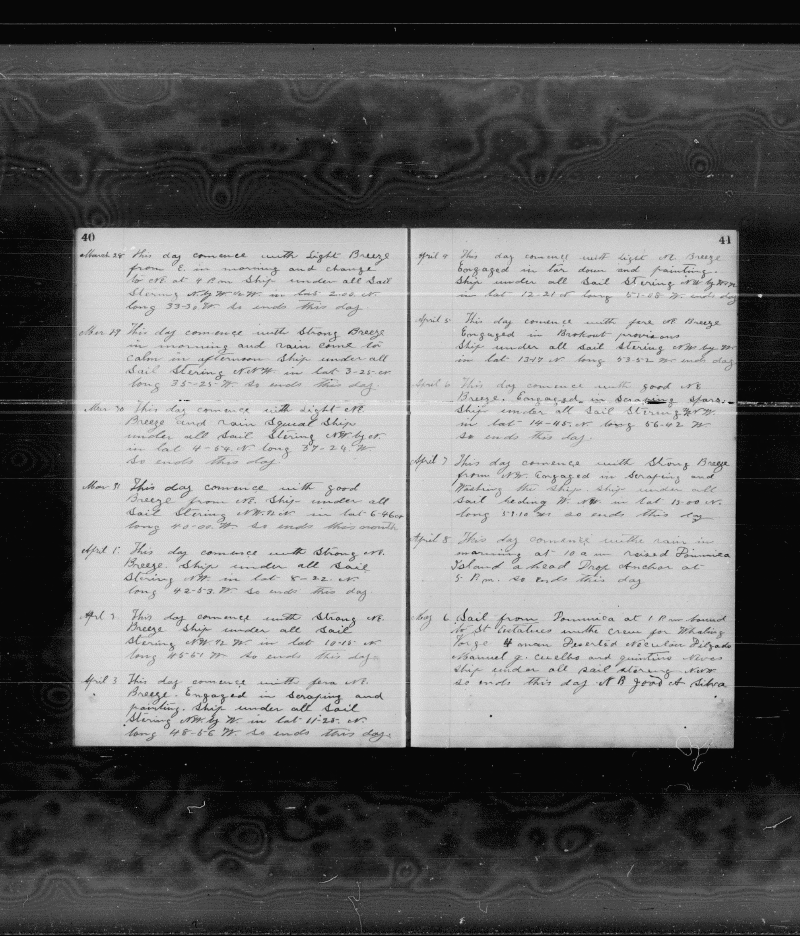 40
March 28 This day comence with Light Breeze
from E. in morning and change
to NE at 4 P.m Ship under all Sail
Stering N.by W in lat 2-02 N.
long 33-30 W so ends this day
Mar 29 This day comence with Strong Breeze
in morning and rain come to
calm in afternoon Ship under all
Sail Stering N.N.W. in lat 3-25 N
long 35-25 W. so ends this day.
Mar 30 This day comence with Light NE.
Breeze and rain Squal Ship
under all Sail Stering NW by N.
in lat 4-54 N long 37-24 W
So ends this day
Mar 31 This day comence with good
Breeze from NE. Ship under all
Sail Stering N.W. in lat 6-46 N
long 40-00 W so ends this month
April 1. This day comence with Strong NE.
Breeze. Ship under all Sail
Stering NW. in lat 8-22. N
long 42-53. W so ends this day
April 2. This day comence with Strong NE.
Breeze Ship under all Sail
Stering N.W. in lat 10-15 N
long 45-51 W so ends this day.
April 3 This day comence with fera NE.
Breeze. Engaged in scraping and
painting. Ship under all Sail
Stering NW. by W in lat 11-25. N
long 48-56 W so ends this day.
41
April 4 This day comence with light NE Breeze
Engaged in tar down and painting.
Ship under all Sail Stering NW. by W
in lat 12-21 N long 51-08 W ends day
April 5 This day comence with fera NE Breeze
Engaged in Brokout provisons
Ship under all sail Stering NW. by W.
in lat 13-17 N long 53-52 W ends day
April 6 This day comence with good NE
Breeze. Engaged in Scraping spars.
Ship under all Sail Stering W.
in lat 14-45. N long 56-42 W
So ends this day.
April 7 This day comence with Strong Breeze
from NE. Engaged in Scraping and
Washing the Ship. Ship under all
Sail W. in lat 15-00 N.
long 59-10 W so ends this day
April 8 This day comence withe rain in
morning at 10 a m raised Dominica
Island a head Drop Anchor at
5 P.m. so ends this day
May 6 Sail from Dominica at 1 P.m bound
to St withe crew for Whaling
4 man Deserted Nicculau Delgado
Banuel g. cuelho and quintino Neves
Ship under all sail stering N.W
so ends this day N B Joao A Silva